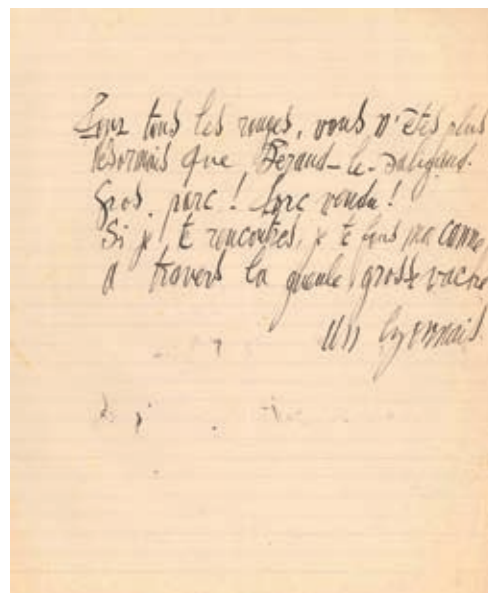 Pour tous les rouges, vous n'êtes plus
désormais que Béraud-le-Saligaud.
Gros porc ! Porc vendu !
Si je te rencontres, je te fous ma canne
à travers la gueule grosse vache
Un lyonnais.